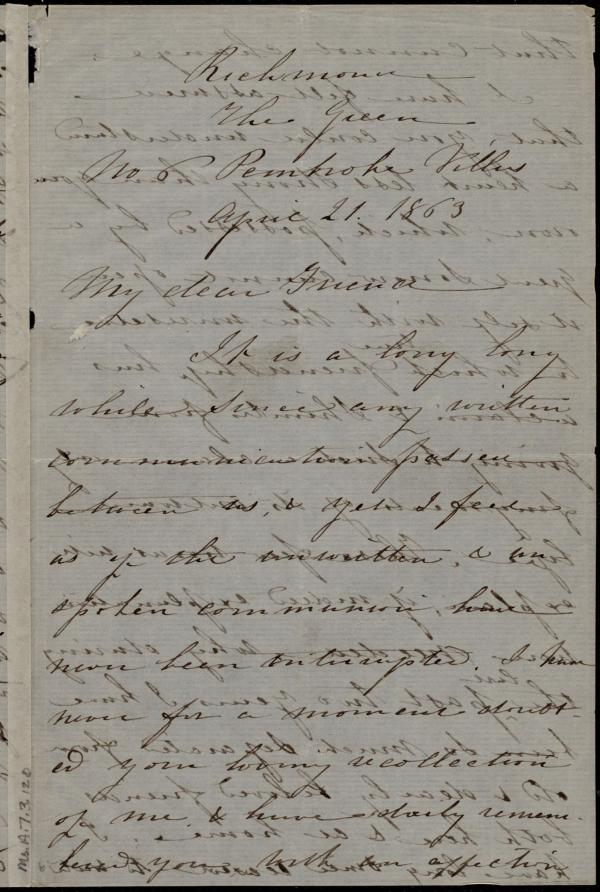 Richmond
The Green
No 6 Pembroke Villas
April 21. 1863
My dear Friend
It is a long long
while since any written
communication passed
between us, & yet I feel
as if the unwritten, & un
spoken communion have
never been interrupted. I have
never for a moment doubt-
ed your loving recollection
of me & have daily remem-
bered you with an affection
Ms.A.7.3.120